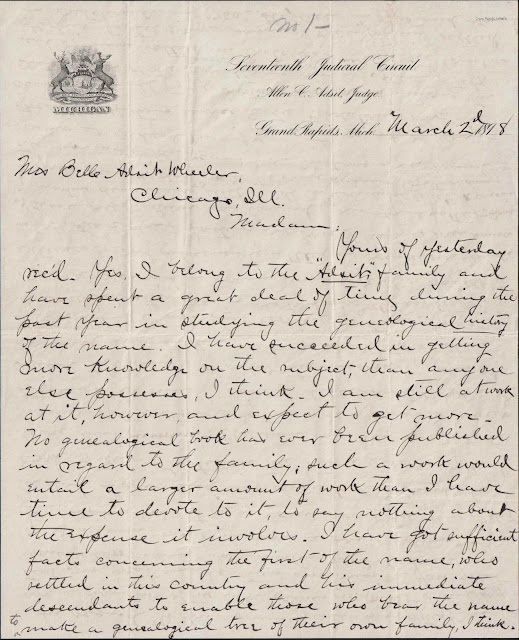 No 1-
Seventeenth Judicial Circuit
Allen C. Adsit, Judge
MICHIGAN
Grand Rapids, Mich. March 2d 1898
Mrs Belle Adsit Wheeler,
Chicago, Ill.
Madam;
Yours of yesterday
rec'd. Yes, I belong to the "Adsit" family and
have spent a great deal of time during the
past year in studying the geneological history
of the name. I have succeeded in getting
more knowledge on the subject, than any one
else possesses, I think. I am still at work
at it, however, and expect to get more.
No genealogical book has ever been published
in regard to the family; such a work would
entail a larger amount of work than I have
time to devote to it, to say nothing about
the expense it involves. I have got sufficient
facts concerning the first of the name, who
settled in this country and his immediate
descendants to enable those who bear the name
to make a genealogical tree of their own family, I think.